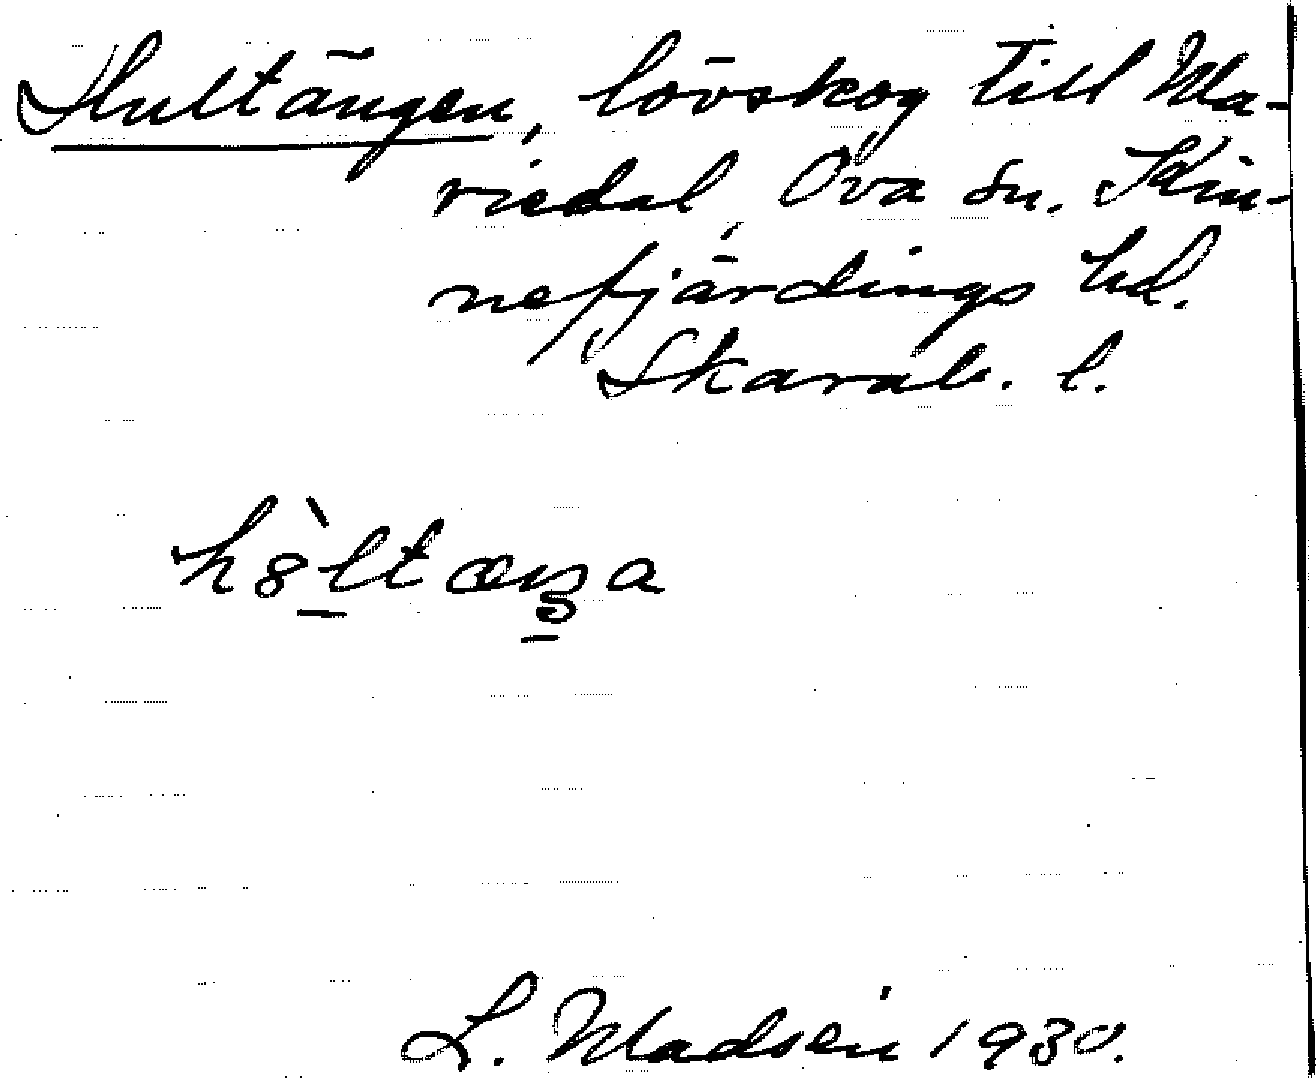 Hultängen, lövskog till Ma-
riedal, Öva sn. Kin-
nefjärdings hd.
Skarab. l.
L. Madsén 1930.